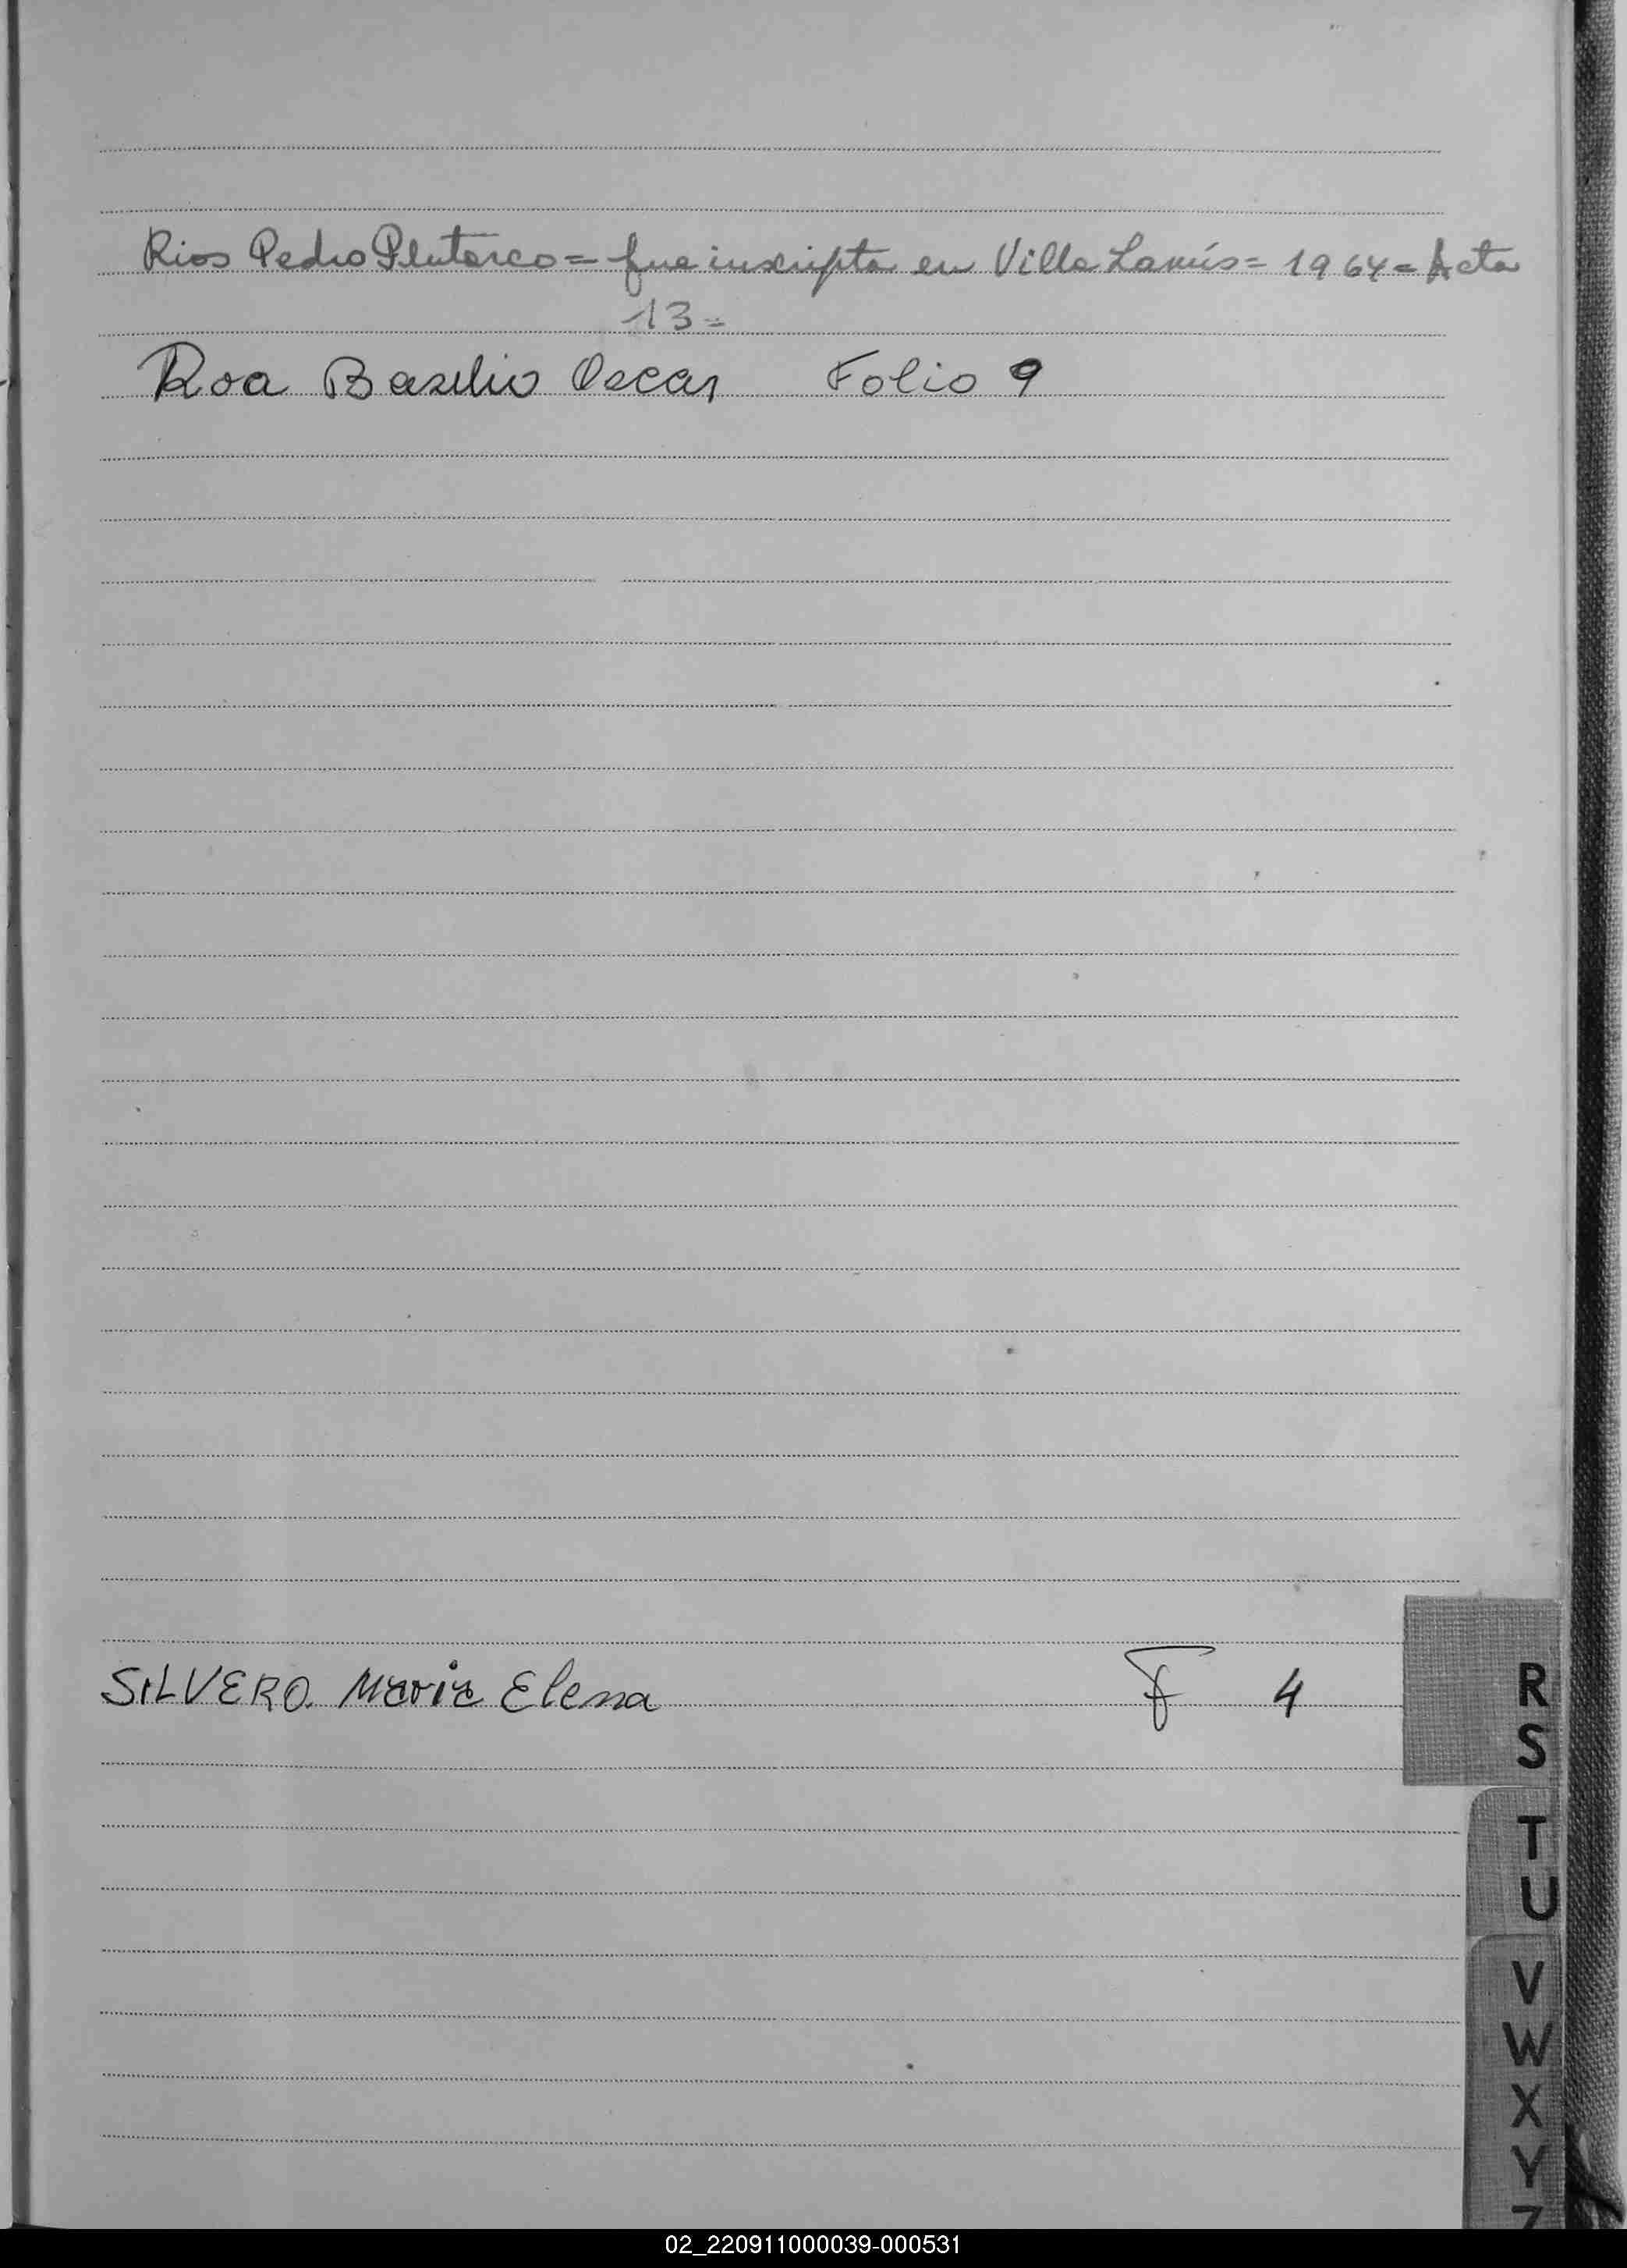 Rios Pedro Plutarco = fue inscripta en Villa Lanús = 1964 = Acta
13 =
Roa Basilio Oscar Folio 9
SILVERO. Maria Elena F 4
R
S
T
U
V
W
X
Y
Z
02_220911000039-000531